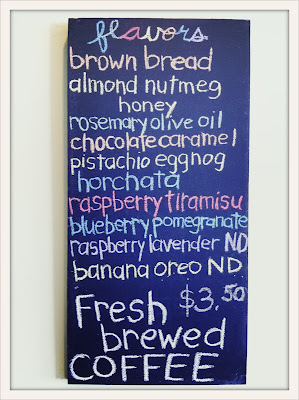 flavors
brown bread
almond nutmeg
honey
rosemary olive oil
chocolate caramel
pistachio eggnog
horchata
raspberry tiramisu
blueberry pomegranate
raspberry lavender ND
banana oreo ND
Fresh $3.50
brewed
COFFEE